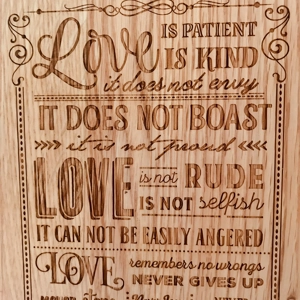 Love IS PATIENT
IS KIND
it does not envy
IT DOES NOT BOAST
it is not proud
LOVE is not RUDE
IS NOT selfish
IT CAN NOT BE EASILY ANGERED
LOVE remembers no wrongs
NEVER GIVES UP